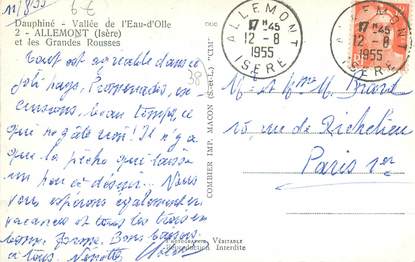 11/8/55
6 €
Dauphiné - Vallée de l'Eau-d'Olle
2 - ALLEMONT (Isère)
et les Grandes Rousses
Tout est agréable dans ce
joli pays. Promenades, ex-
cursions, beau temps, ce
qui ne gâte rien! Il n'y a
que la pêche qui laisse
un peu à désirer... Nous
vous espérons également en
vacances et tous les trois en
bonne forme. Bons baisers
à tous.
38
DUC
COMBIER IMP. MACON (S.-&-L.) "CIM"
PHOTOGRAPHIE VÉRITABLE
Reproduction Interdite
ALLEMONT
17 H45
12 - 8
1955
ISÈRE
ALLEMONT
17 H45
12 - 8
1955
ISÈRE
M. et Mme
15, rue de Richelieu
Paris 1er